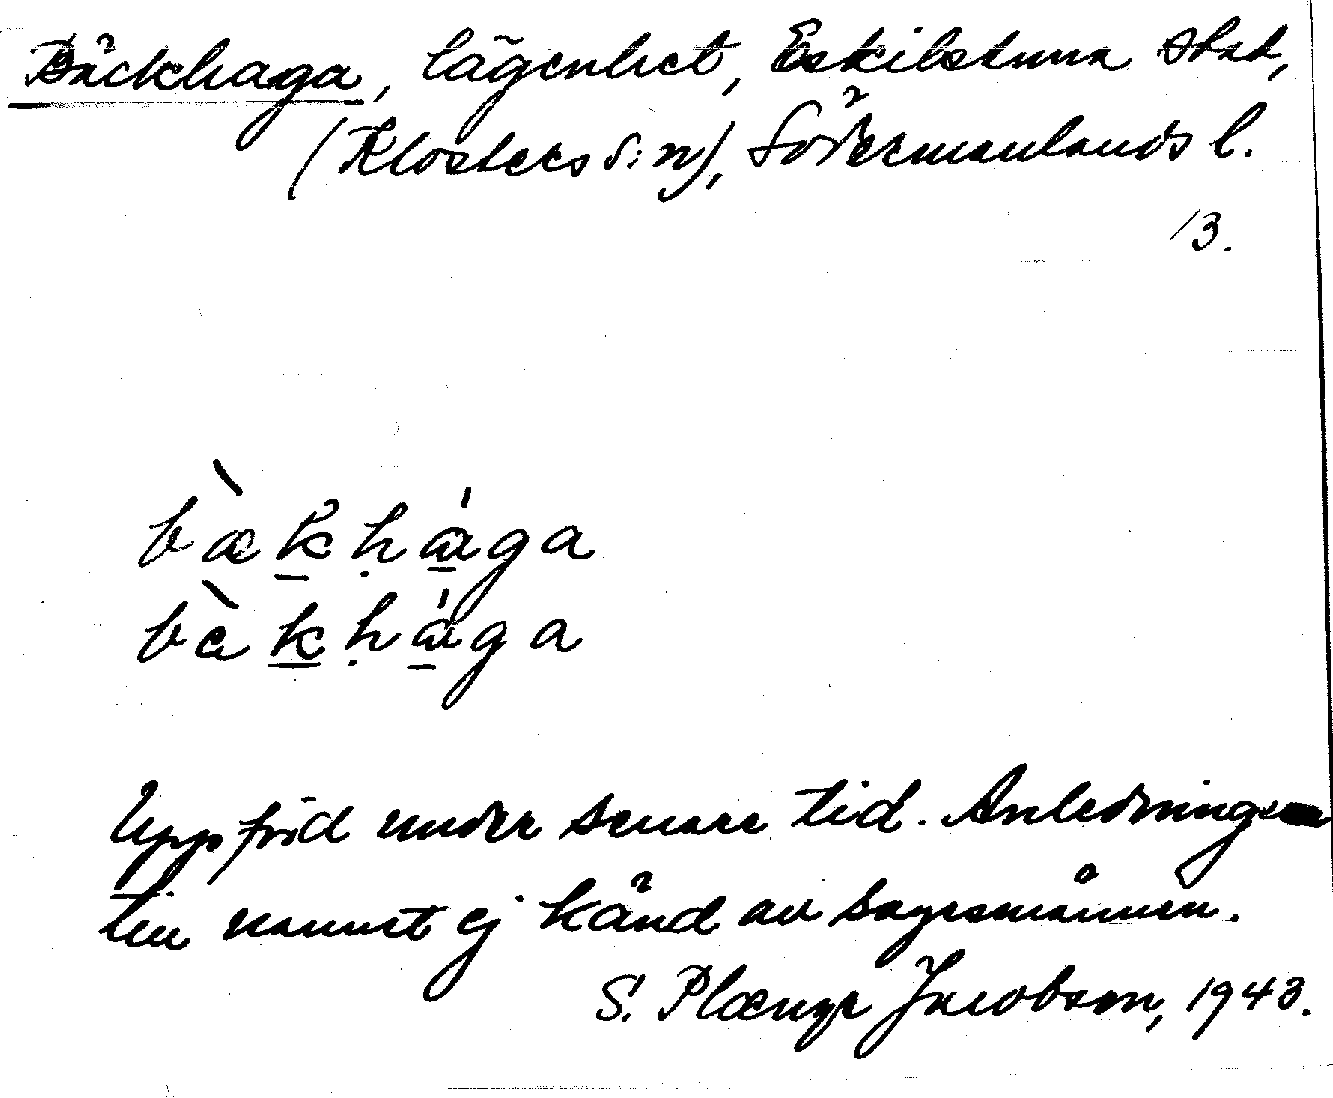 Bäckhaga, lägenhet, Eskilstuna stad,
(Klosters s:n), Södermanlands l.
13.
bæ̀ḵḥa̱̍ga
bàḵḥa̱̍ga
Uppförd under senare tid. Anledningen
till namnet ej känd av sagesmännen.
S. Plænge Jacobson, 1943.